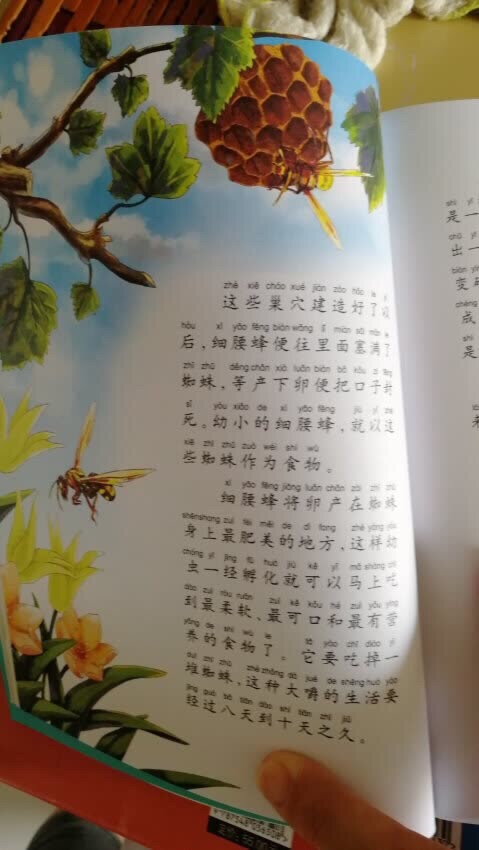 zhè xiē cháo xué jiàn zào hǎo le yǐ
这些巢穴建造好了以
hòu xì yāo fēng biàn wǎng lǐ miàn sāi mǎn le
后，细腰蜂便往里面塞满了
zhī zhū děng chǎn xià luǎn biàn bǎ kǒu zi fēng
蜘蛛，等产下卵便把口子封
sǐ yòu xiǎo de xì yāo fēng jiù yǐ zhè
死。幼小的细腰蜂，就以这
xiē zhī zhū zuò wéi shí wù
些蜘蛛作为食物。
xì yāo fēng jiāng luǎn chǎn zài zhī zhū
细腰蜂将卵产在蜘蛛
shēnshang zuì féi měi de dì fang zhè yàng yòu
身上最肥美的地方，这样幼
chóng yì jīng fū huà jiù kě yǐ mǎ shàng chī
虫一经孵化就可以马上吃
dào zuì róu ruǎn zuì kě kǒu hé zuì yǒu yíng
到最柔软、最可口和最有营
yǎng de shí wù le tā yào chī diào yì
养的食物了。它要吃掉一
duī zhī zhū zhè zhǒng dà jué de shēng huó yào
堆蜘蛛，这种大嚼的生活要
jīng guò bā tiān dào shí tiān zhī jiǔ
经过八天到十天之久。
shì yì
是一
chū yì
出一
变
chéng
成
shì
是